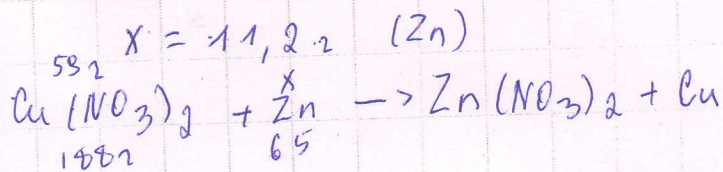 x = 11,2 г (Zn)
x
Cu(NO₃)₂ + Zn —> Zn(NO₃)₂ + Cu
188г 65